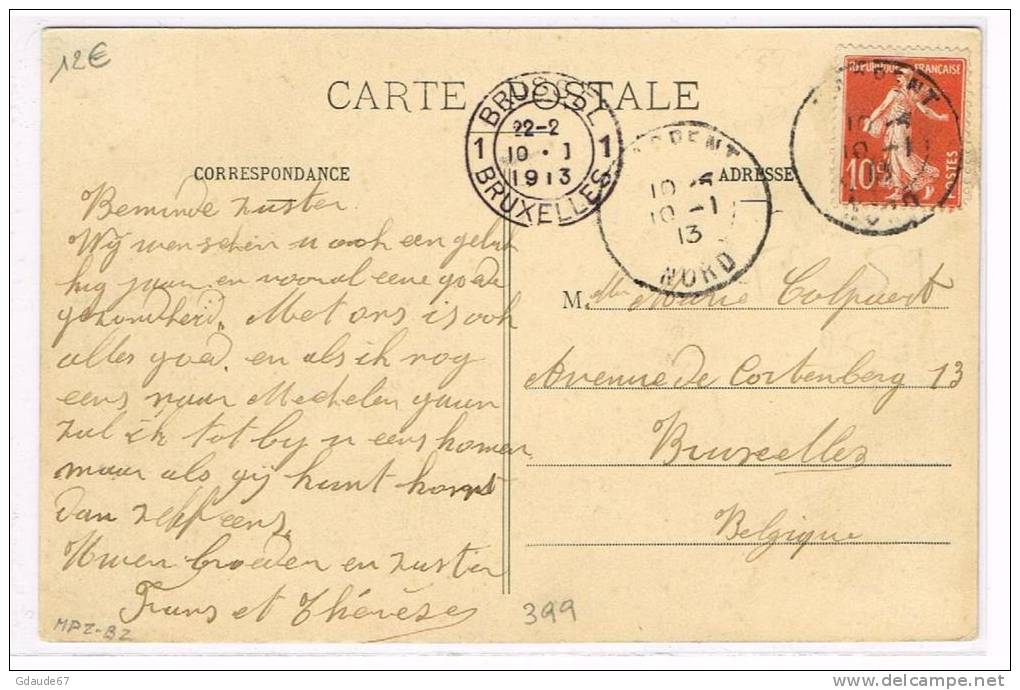 12€
CARTE POSTALE
BRUSSEL
1 22-2 1
10 · 1
1913
BRUXELLES
10 -1
13
NORD
REPUBLIQUE FRANÇAISE
10
POSTES
10 -1
13
NORD
CORRESPONDANCE
ADRESSE
Beminde zuster
Wij wenschen u ook een geluk
kig jaar en vooral eene goede
gezondheid. Met ons is ook
alles goed. en als ik nog
eens naar Mechelen gaan
zal ik tot bij u eens komen
maar als gij kunt komt
dan zelf eens.
Uwen broeder en zuster
Frans et Thérèse
M. Marie Colpaert
Avenue de Cortenberg 13
Bruxelles
Belgique
399
MPZ-BZ
Gdaude67
delcampe.net